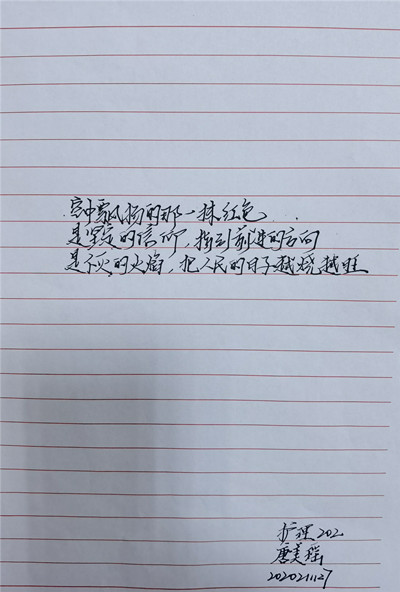 空中飘扬的那一抹红色
是坚定的信仰，指引前进的方向
是不灭的火焰，把人民的日子越烧越旺
护理202
唐美瑶
202021127